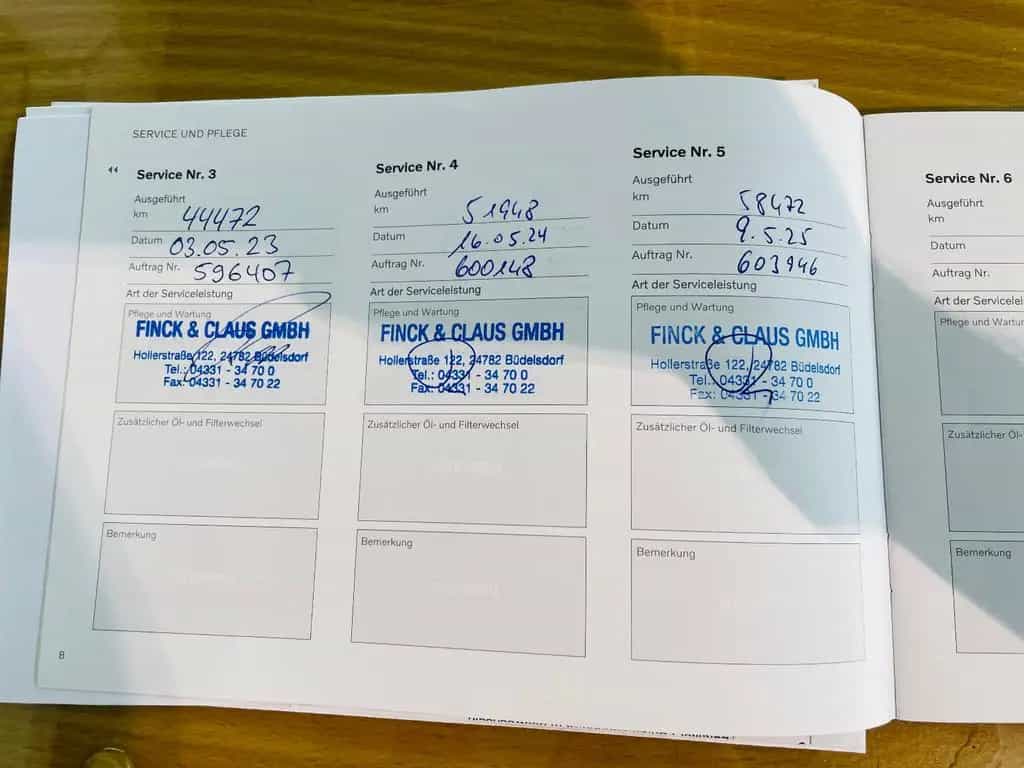 SERVICE UND PFLEGE
Service Nr. 3
Ausgeführt
km 44472
Datum 03.05.23
Auftrag Nr. 596407
Art der Serviceleistung
Pflege und Wartung
FINCK & CLAUS GMBH
Hollerstraße 122, 24782 Büdelsdorf
Tel.: 04331 - 34 70 0
Fax: 04331 - 34 70 22
Zusätzlicher Öl- und Filterwechsel
Bemerkung
8
Service Nr. 4
Ausgeführt
km 51948
Datum 16.05.24
Auftrag Nr. 600148
Art der Serviceleistung
Pflege und Wartung
FINCK & CLAUS GMBH
Hollerstraße 122, 24782 Büdelsdorf
Tel.: 04331 - 34 70 0
Fax: 04331 - 34 70 22
Zusätzlicher Öl- und Filterwechsel
Bemerkung
Service Nr. 5
Ausgeführt
km 58472
Datum 9.5.25
Auftrag Nr. 603946
Art der Serviceleistung
Pflege und Wartung
FINCK & CLAUS GMBH
Hollerstraße 122, 24782 Büdelsdorf
Tel.: 04331 - 34 70 0
Fax: 04331 - 34 70 22
Zusätzlicher Öl- und Filterwechsel
Bemerkung
Service Nr. 6
Ausgeführt
km
Datum
Auftrag Nr.
Art der Serviceleis
Pflege und Wartung
Zusätzlicher Öl- und
Bemerkung